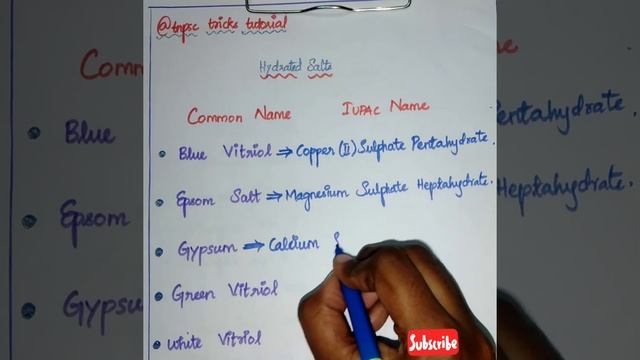 @tnpsc tricks tutorial
Hydrated Salts
Common Name IUPAC Name
Blue Vitriol ⇒ Copper (II) Sulphate Pentahydrate.
Epsom Salt ⇒ Magnesium Sulphate Heptahydrate.
Gypsum ⇒ Calcium S
Green Vitriol
White Vitriol
Subscribe